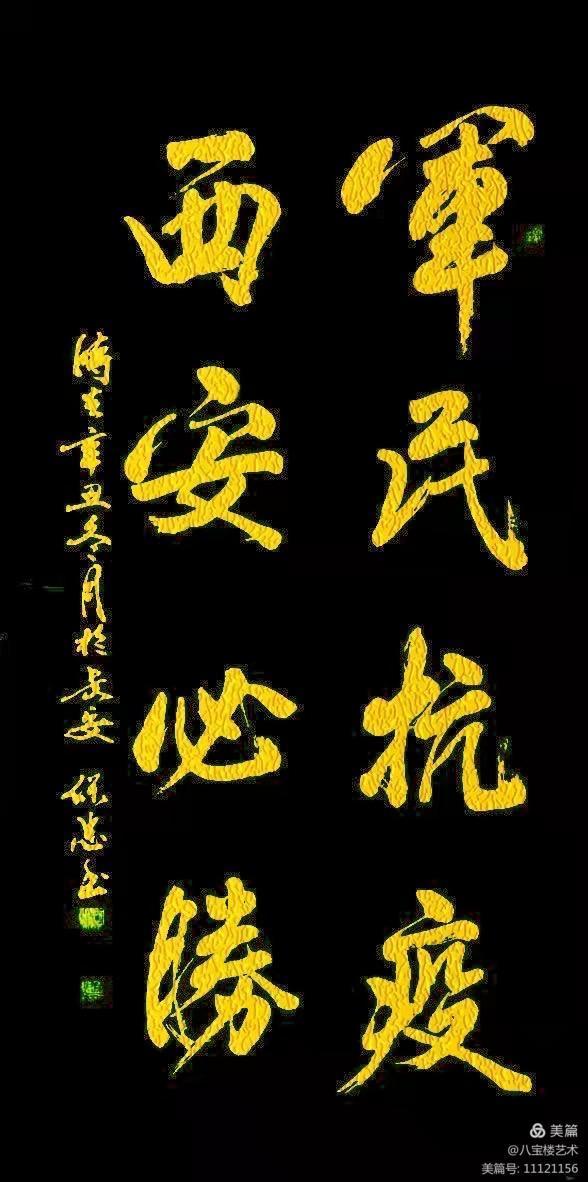 軍民抗疫
西安必勝
辛丑冬月於長安 保忠書
美篇
@八宝楼艺术
美篇号: 11121156